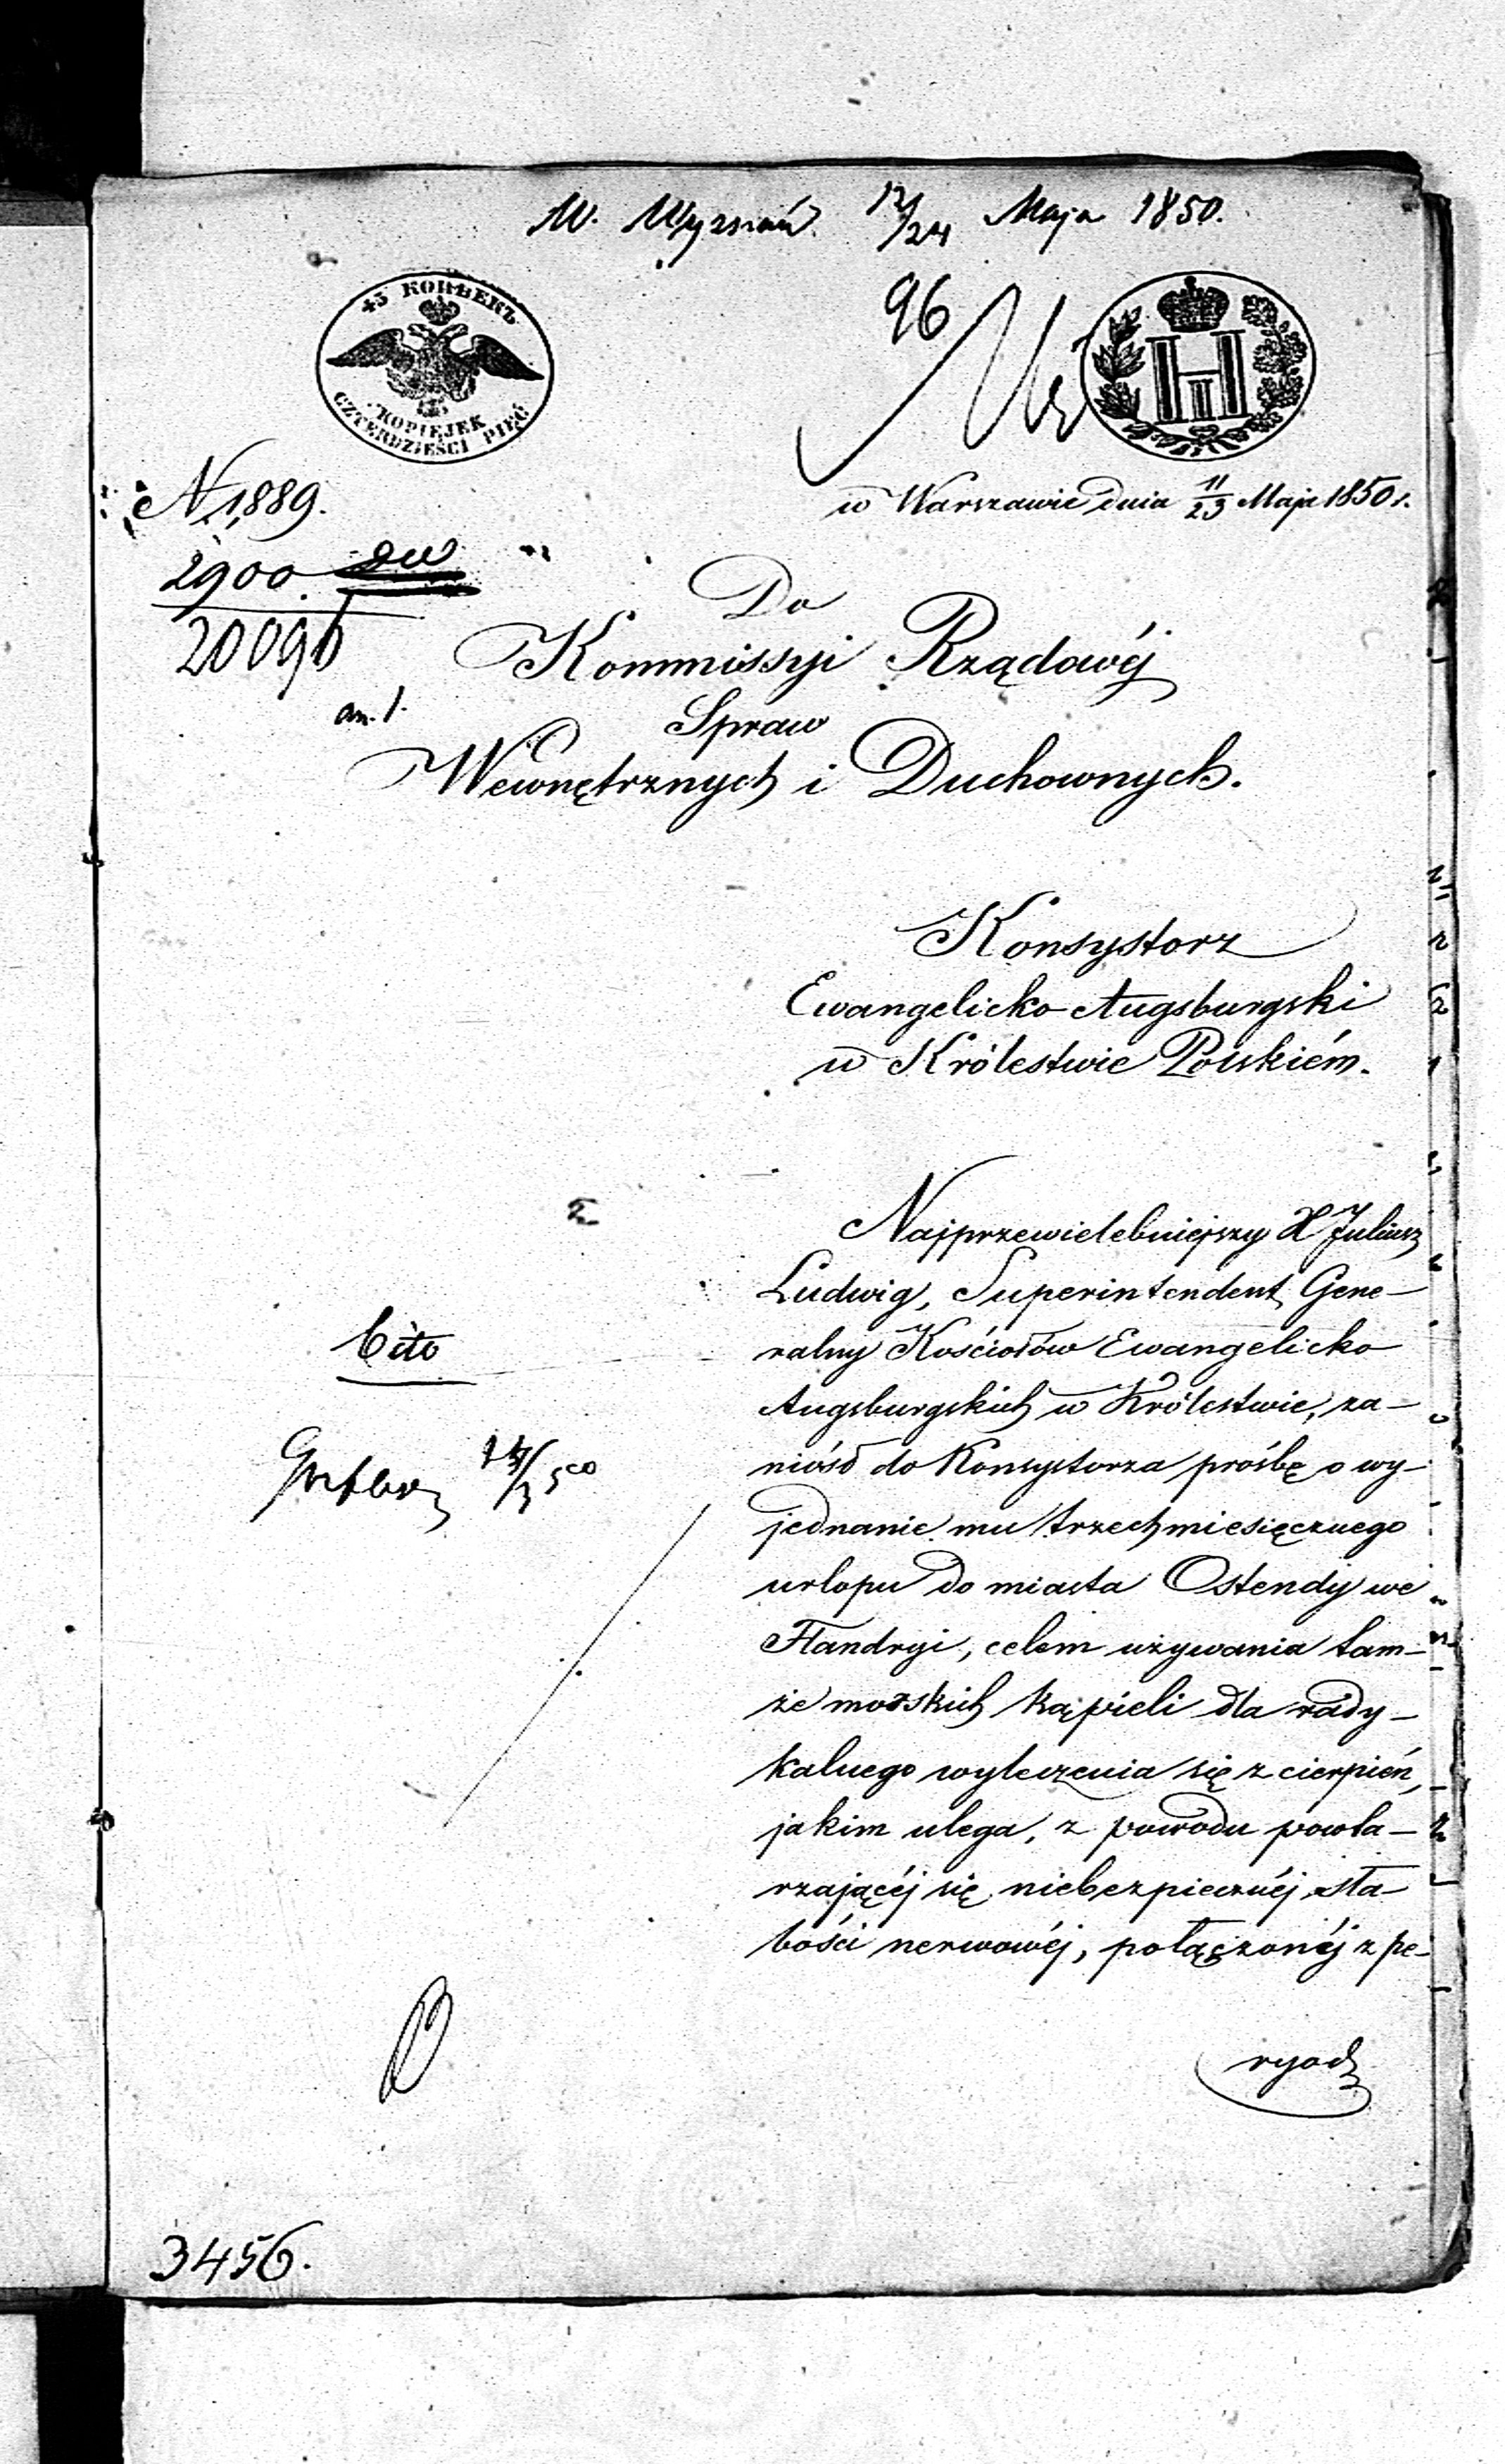 W. Wyznań. 12/24 Maja 1850.
96
45 КОПѢЕКЪ
KOPIEJEK
CZTERDZIEŚCI PIĘĆ
N 1,889.
w Warszawie dnia 11/23 Maja 1850 r.
2900.
20096
an. 1.
Do
Kommissyi Rządowéj
Spraw
Wewnętrznych i Duchownych.
Konsystorz
Ewangelicko-Augsburgski
w Królestwie Polskiém.
Najprzewielebniejszy X Juliusz
Ludwig, Superintendent Gene-
ralny Kościołów Ewangelicko
Augsburgskich w Królestwie, za-
niósł do Konsystorza prośbę o wy-
jednanie mu trzechmiesięcznego
urlopu do miasta Ostendy we
Flandryi, celem używania tam-
że morskich kąpieli dla rady-
kalnego wyleczenia się z cierpień,
jakim ulega, z powodu powta-
rzającéj się niebezpiecznéj sła-
bości nerwowéj, połączonéj z pe-
ryod
Cito
3456.